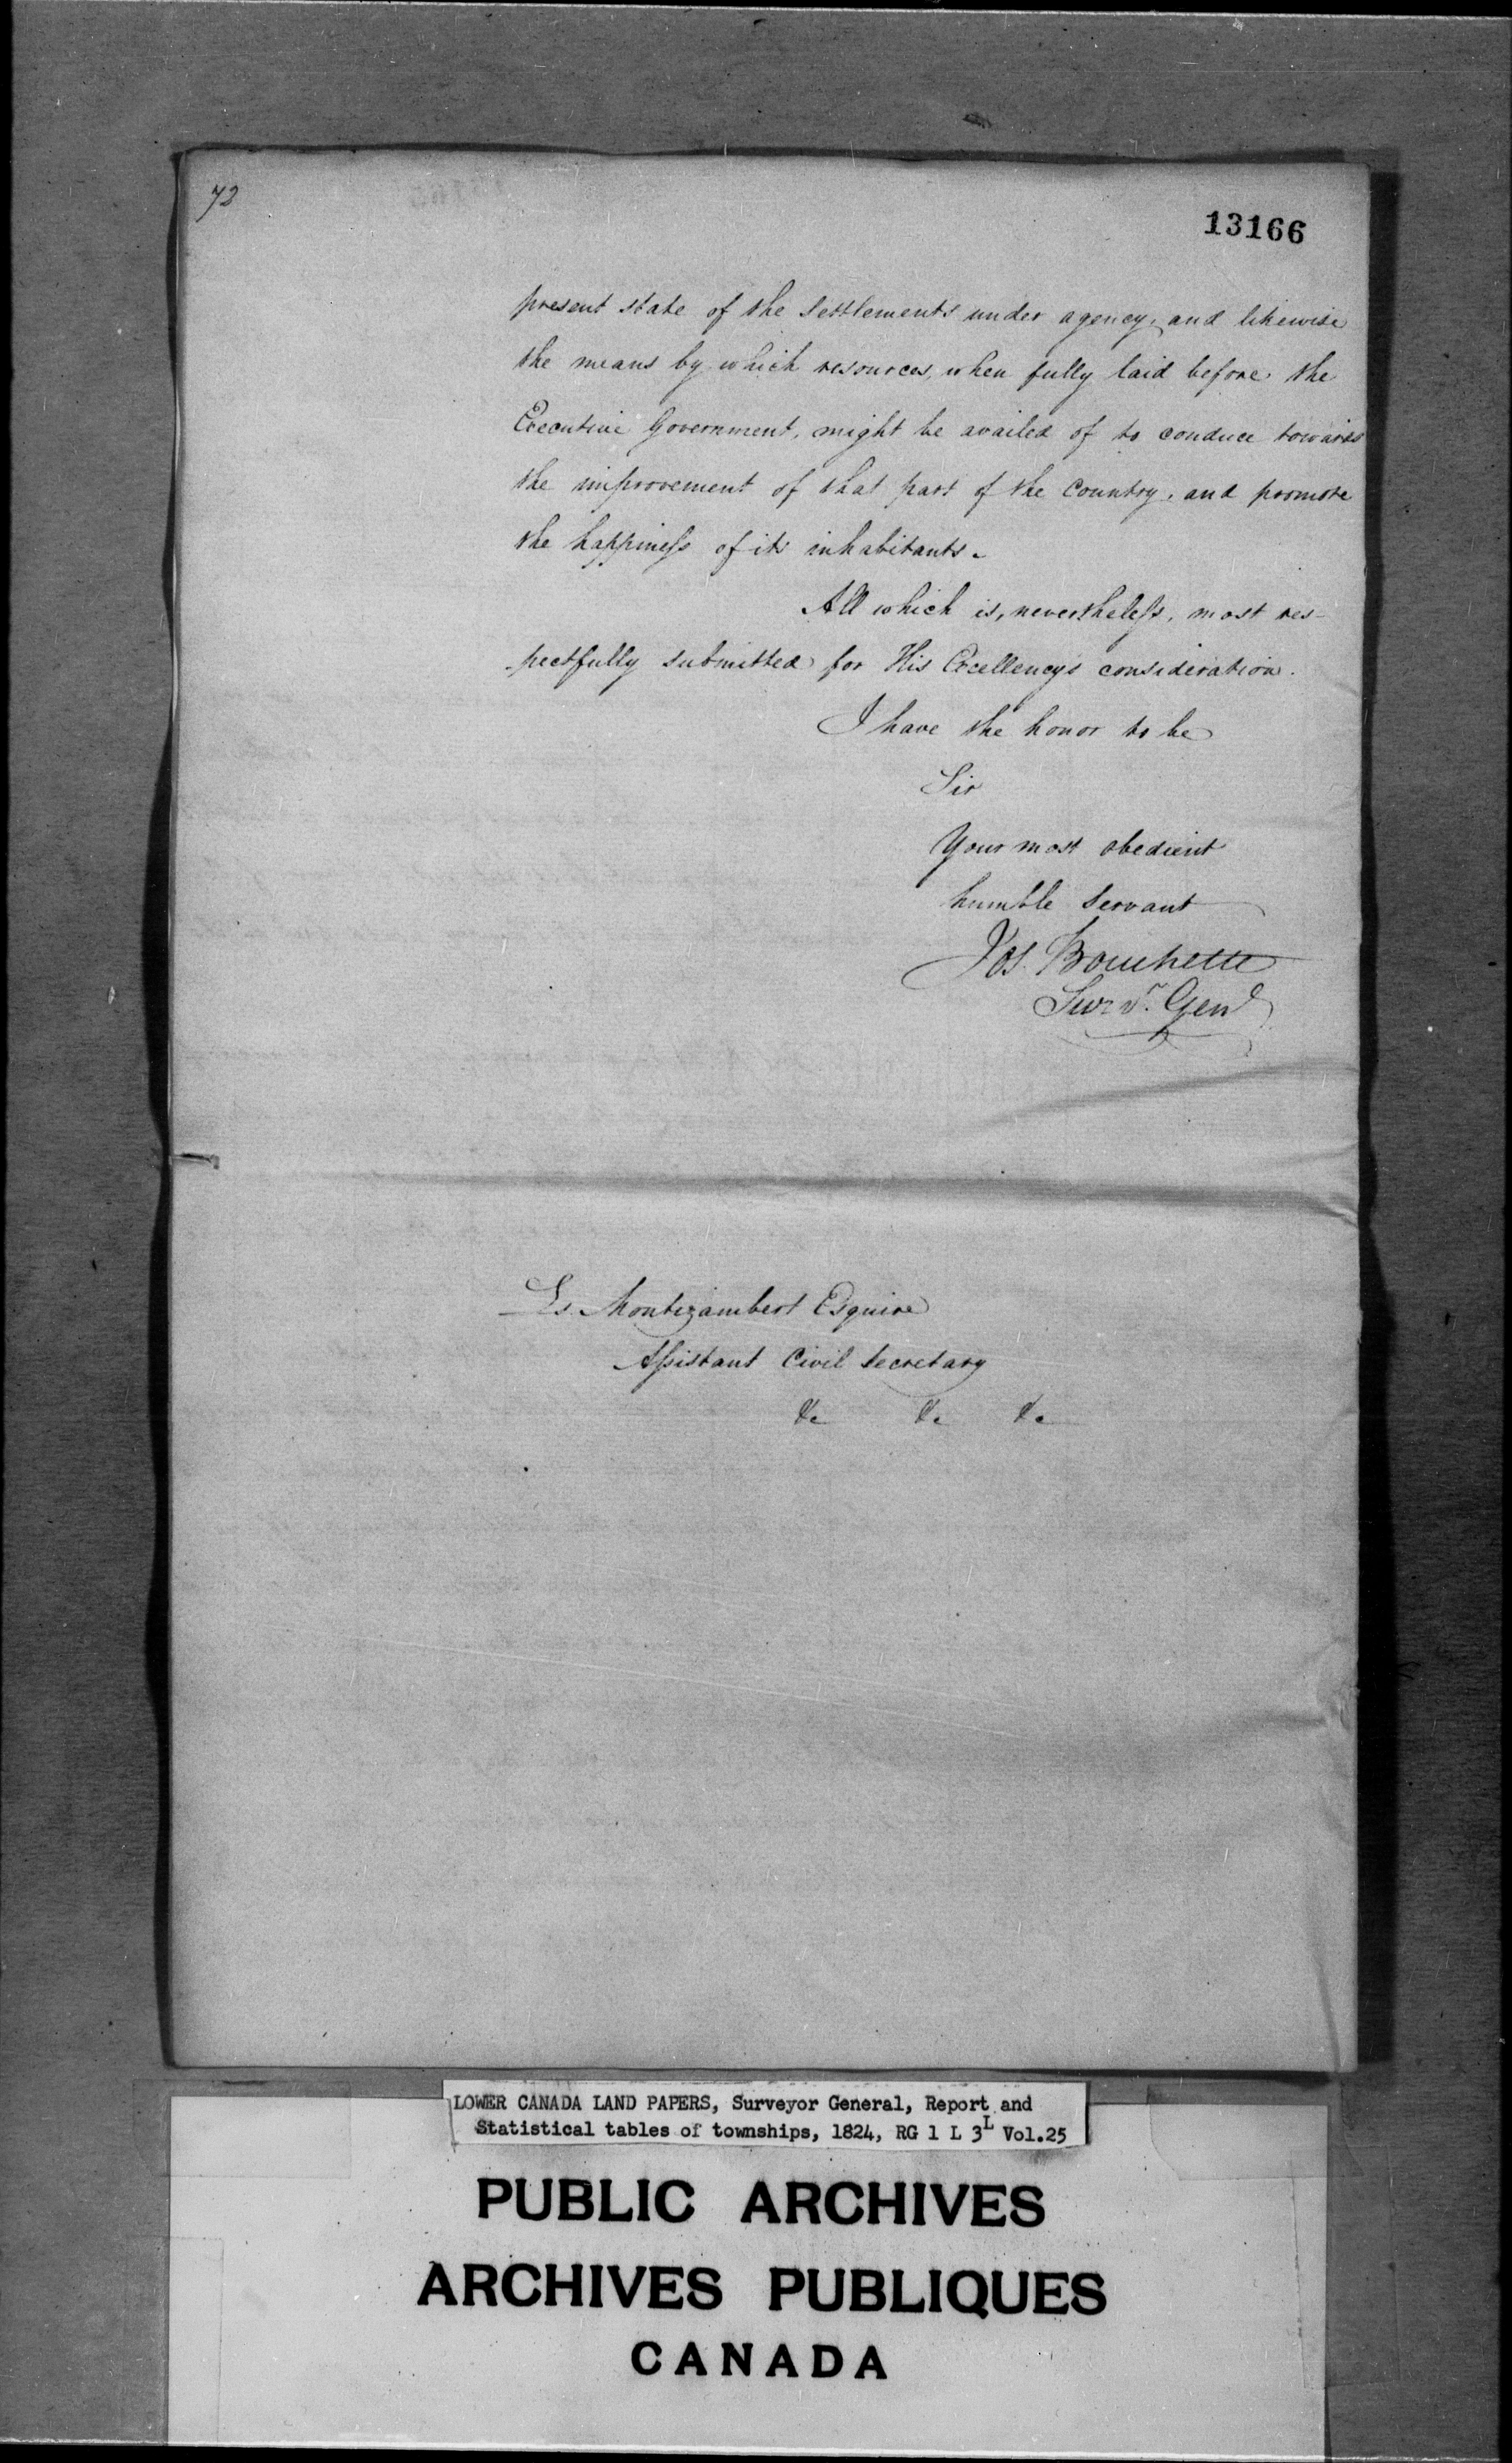 72
13166
present state of the Settlements under agency, and likewise
the means by which resources, when fully laid before the
Executive Government, might be availed of to conduce towards
the improvement of that part of the Country, and promote
the happiness of its inhabitants.
All which is, nevertheless, most res-
pectfully submitted for His Excellency's consideration.
I have the honor to be
Sir
Your most obedient
humble Servant
Jos. Bouchette
Survr. Genl
Ls. Montizambert Esquire
Assistant Civil Secretary
&c &c &c
LOWER CANADA LAND PAPERS, Surveyor General, Report and
Statistical tables of townships, 1824, RG 1 L 3L Vol.25
PUBLIC ARCHIVES
ARCHIVES PUBLIQUES
CANADA